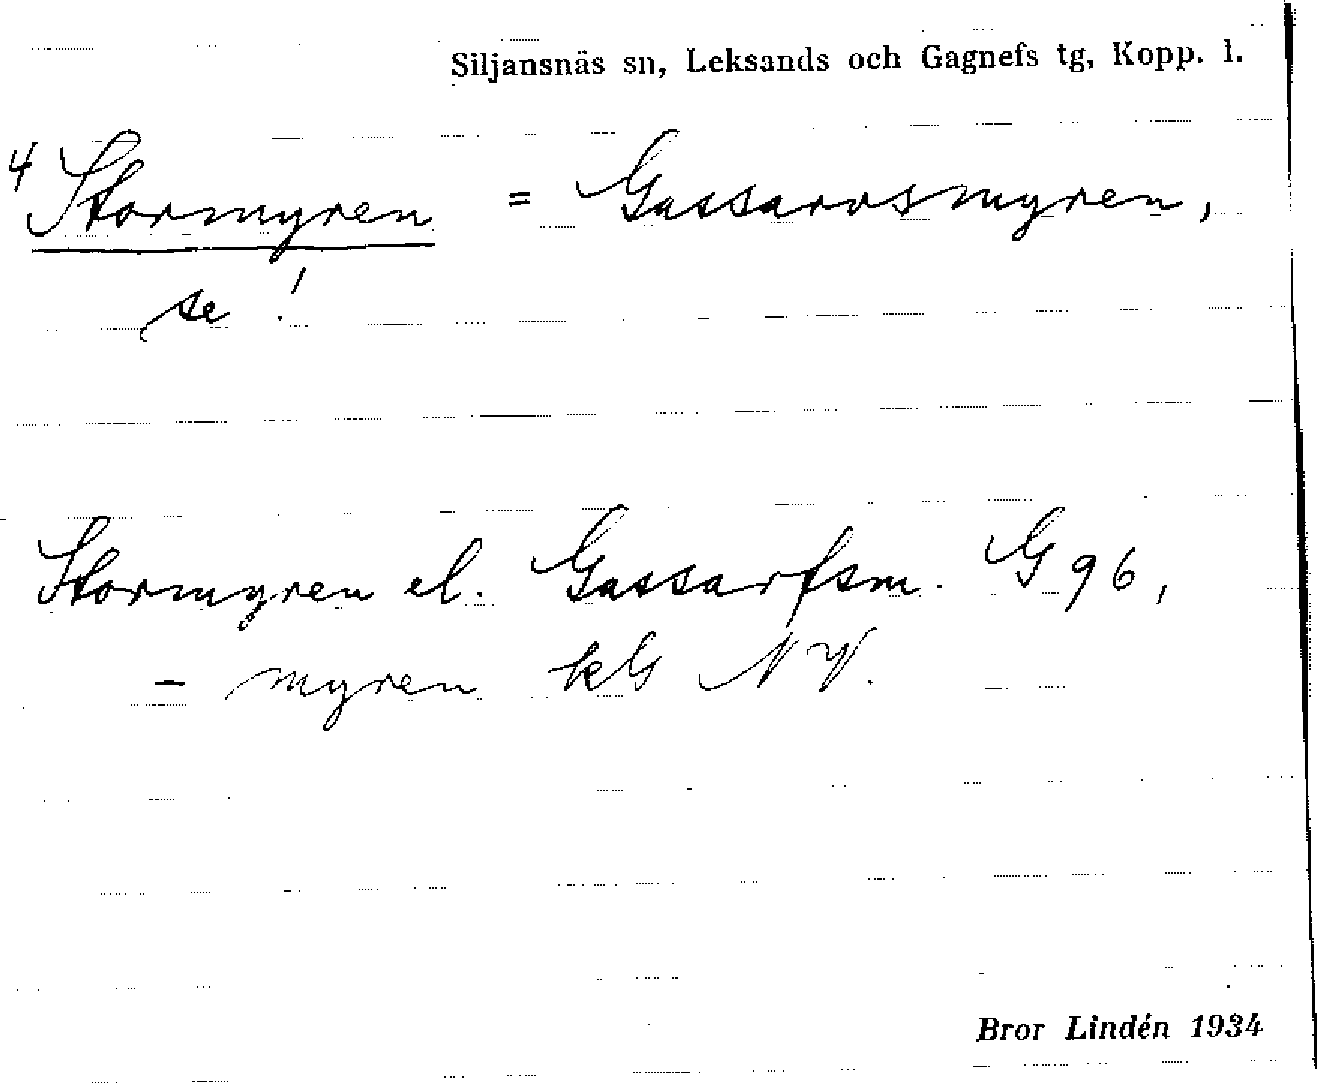 Siljansnäs sn, Leksands och Gagnefs tg, Kopp. l.
4 Stormyren = Gassarvsmyren,
se !
Stormyren el. Gassarfsm. G 96,
- myren kG NV.
Bror Lindén 1934